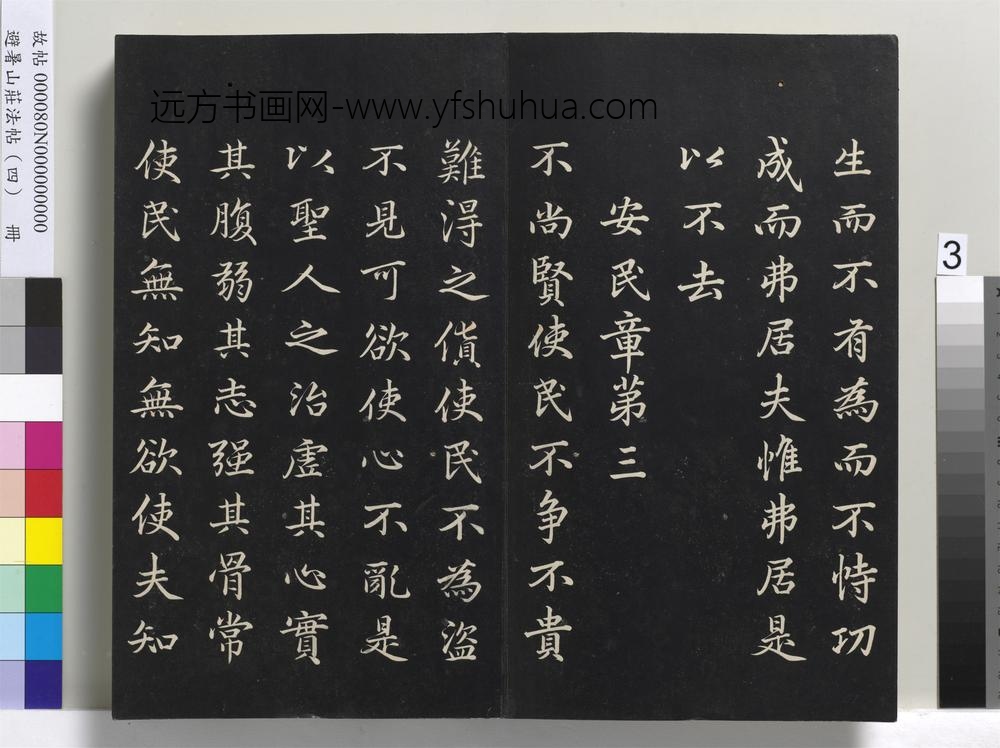 生而不有為而不恃功
成而弗居夫惟弗居是
以不去
安民章第三
不尚賢使民不争不貴
難得之貨使民不為盜
不見可欲使心不亂是
以聖人之治虛其心實
其腹弱其志强其骨常
使民無知無欲使夫知
远方书画网-www.yfshuhua.com
故帖 000080N000000000
避暑山莊法帖(四) 冊
3